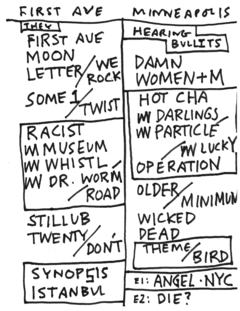 FIRST AVE
MINNEAPOLIS
THEY
FIRST AVE
MOON
LETTER/WE
ROCK
SOME 1/TWIST
RACIST
W MUSEUM
W WHISTL.
W DR. WORM/
ROAD
STILLUB
TWENTY/DON'T
SYNOPSIS
ISTANBUL
HEARING
BULLITS
DAMN
WOMEN+M
HOT CHA
W DARLINGS
W PARTICLE/
W LUCKY
OPERATION
OLDER/MINIMUM
WICKED
DEAD
THEME/BIRD
E1: ANGEL·NYC
E2: DIE?